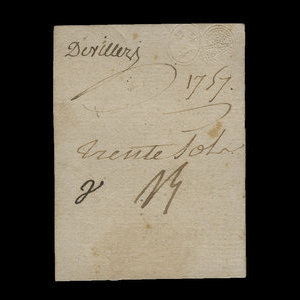 Devillers
1757.
trente Sols